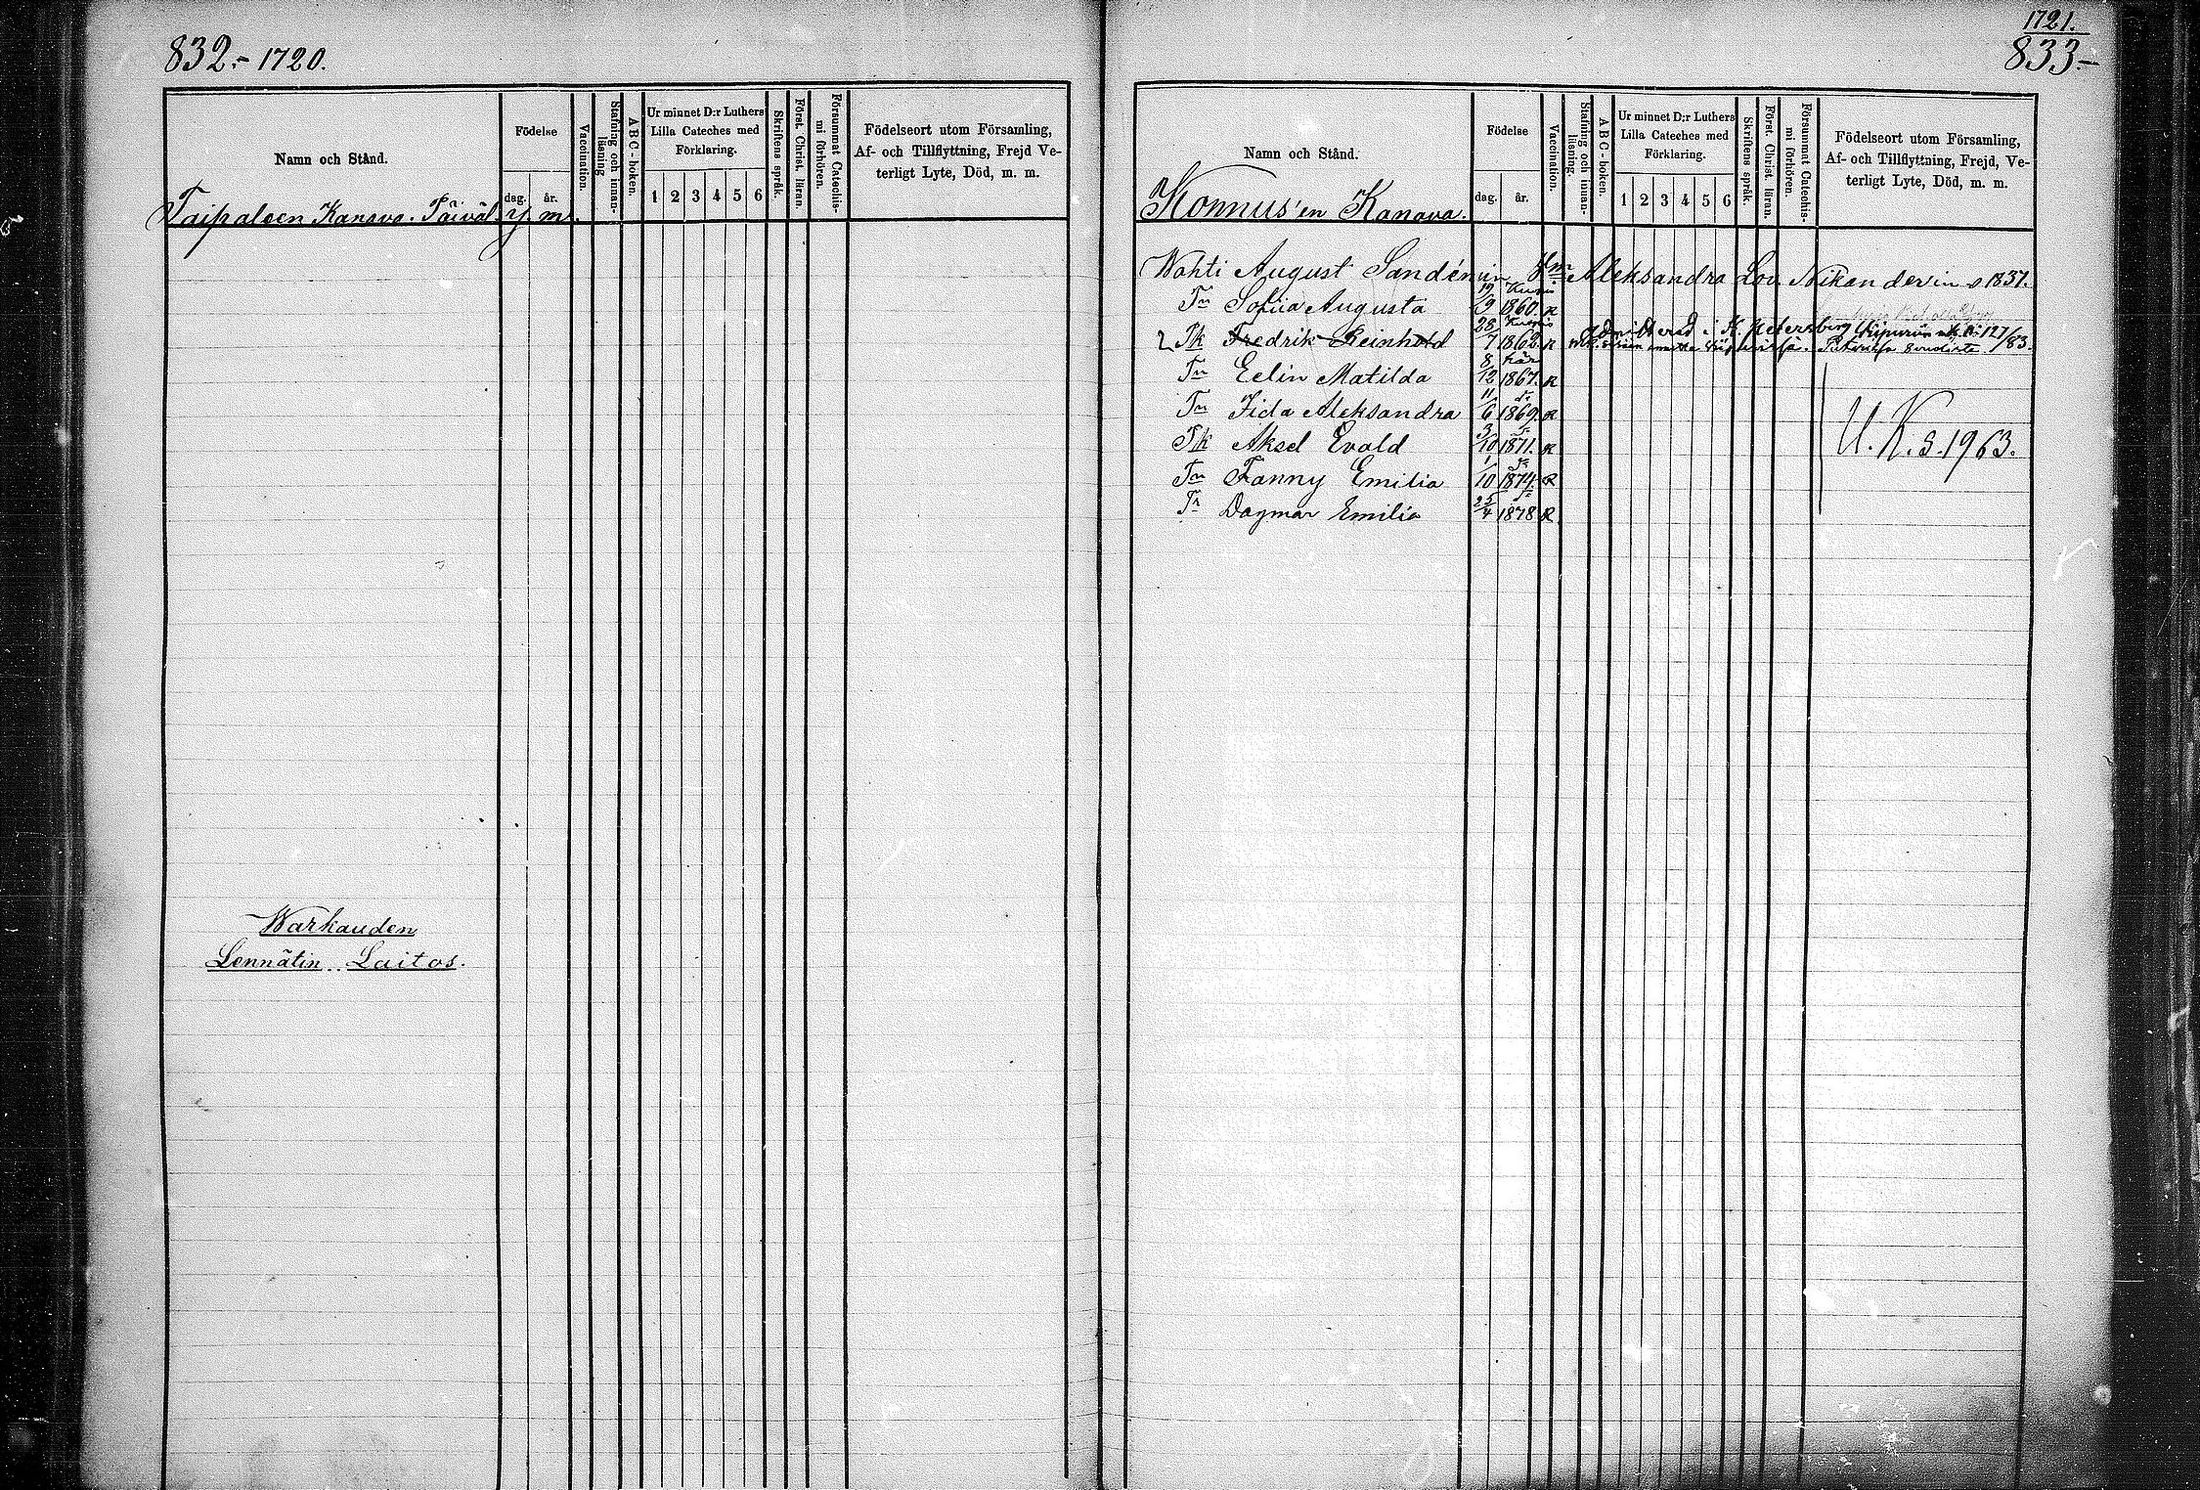 832.- 1720.
Namn och Stånd.
Födelse
dag.
år.
Vaccination.
Stafning och innan-
läsning
ABC-boken.
Ur minnet D:r Luthers
Lilla Cateches med
Förklaring.
1 2 3 4 5 6
Skriftens språk.
Först. Christ. läran.
Försummat Catechis-
mi förhören.
Födelseort utom Församling,
Af- och Tillflyttning, Frejd Ve-
terligt Lyte, Död, m. m.
Taipaleen Kanava. Päiväl. y. m.
Warkauden
Lennätin Laitos.
1721.
833.-
Namn och Stånd.
Födelse
dag.
år.
Vaccination.
Stafning och innan-
läsning.
ABC-boken.
Ur minnet D:r Luthers
Lilla Cateches med
Förklaring.
1 2 3 4 5 6
Skriftens språk.
Först. Christ. läran.
Försummat Catechis-
mi förhören.
Födelseort utom Församling,
Af- och Tillflyttning, Frejd, Ve-
terligt Lyte, Död, m. m.
Konnus'en Kanava.
Wahti August Sandénin Aleksandra Lov. Nikanderin s 1837.
Tr Sofiia Augusta 19/9 1860. R
Pk Fredrik Reinhold 28/7 1862. R i St. Petersburg 127/83.
Tr Eelin Matilda 8/12 1867. R
Tr Fida Aleksandra 11/6 1869. R
Pk Aksel Evald 3/10 1871. R
Tr Fanny Emilia 1/10 1874. R
Tr Dagmar Emilia 25/4 1878 R
U. K. s. 1963.